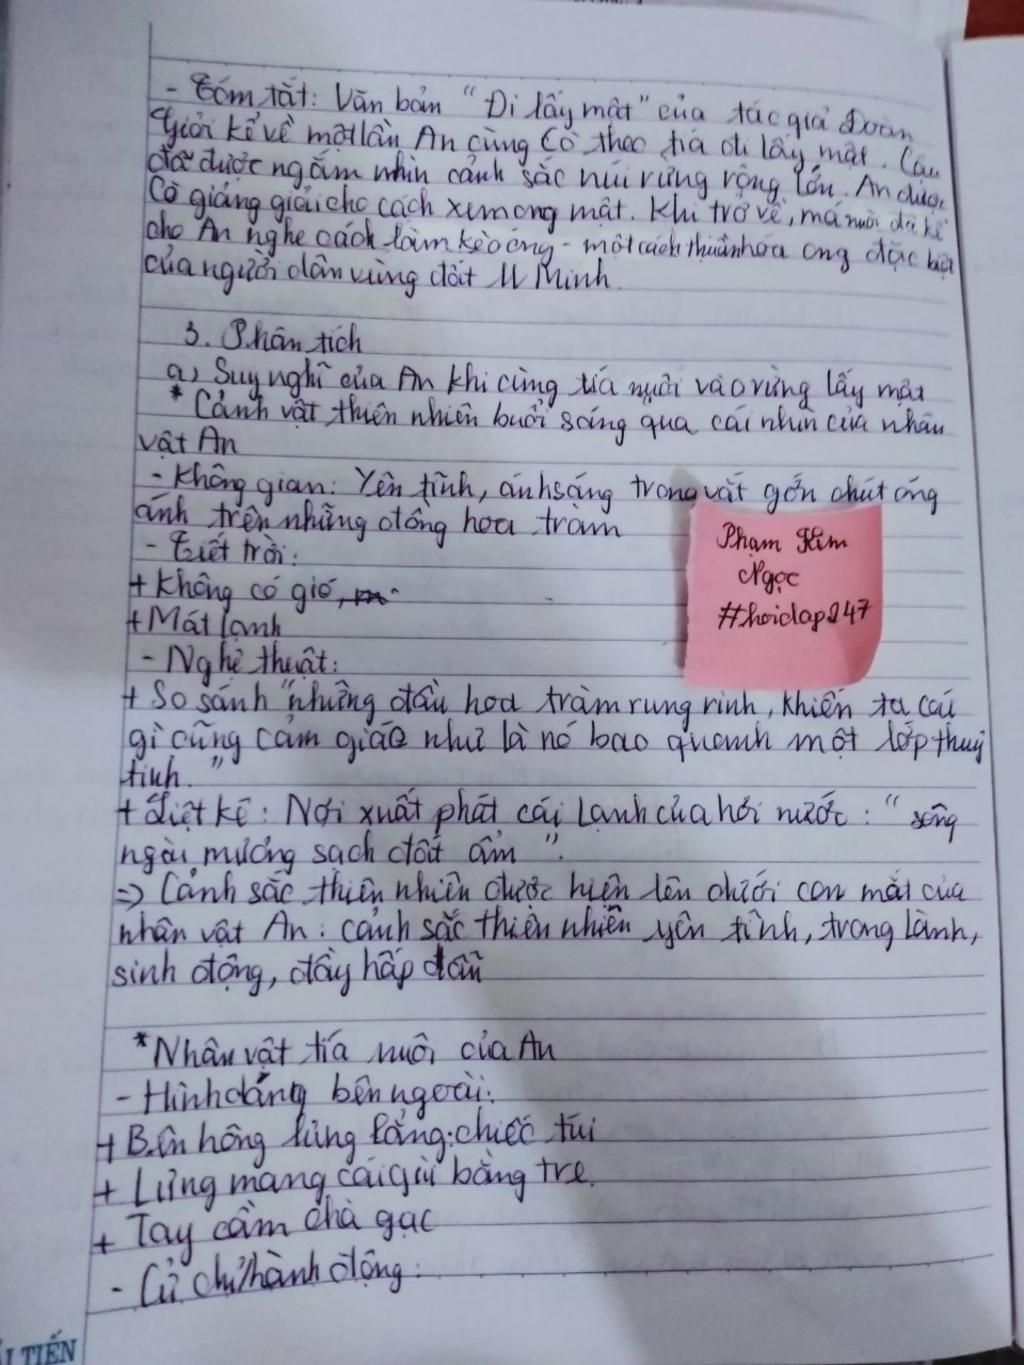 - Tóm tắt: Văn bản "Đi lấy mật" của tác giả Đoàn
Giỏi kể về một lần An cùng Cò theo tía đi lấy mật. Cậu
đã được ngắm nhìn cảnh sắc núi rừng rộng lớn. An được
Cò giảng giải cho cách xem ong mật. Khi trở về, má nuôi đã kể
cho An nghe cách làm kèo ong - một cách thuần hóa ong đặc biệt
của người dân vùng đất U Minh.
3. Phân tích
a) Suy nghĩ của An khi cùng tía nuôi vào rừng lấy mật
* Cảnh vật thiên nhiên buổi sáng qua cái nhìn của nhân
vật An
- Không gian: Yên tĩnh, ánh sáng trong vắt gợn chút óng
ánh trên những đống hoa tràm
- Tiết trời:
+ Không có gió,
+ Mát lạnh
- Nghệ thuật:
+ So sánh "những đầu hoa tràm rung rinh, khiến ta cái
gì cũng cảm giác như là nó bao quanh một lớp thuỷ
tinh."
+ Liệt kê: Nơi xuất phát cái lạnh của hơi nước: "sông
ngòi, mương rạch đất ẩm".
=> Cảnh sắc thiên nhiên được hiện lên dưới con mắt của
nhân vật An: cảnh sắc thiên nhiên yên tĩnh, trong lành,
sinh động, đầy hấp dẫn
* Nhân vật tía nuôi của An
- Hình dáng bên ngoài:
+ Bên hông lủng lẳng: chiếc túi
+ Lưng mang cái gùi bằng tre.
+ Tay cầm chà gạc
- Cử chỉ/hành động:
Phạm Kim
Ngọc
#hoidap247
TIẾN